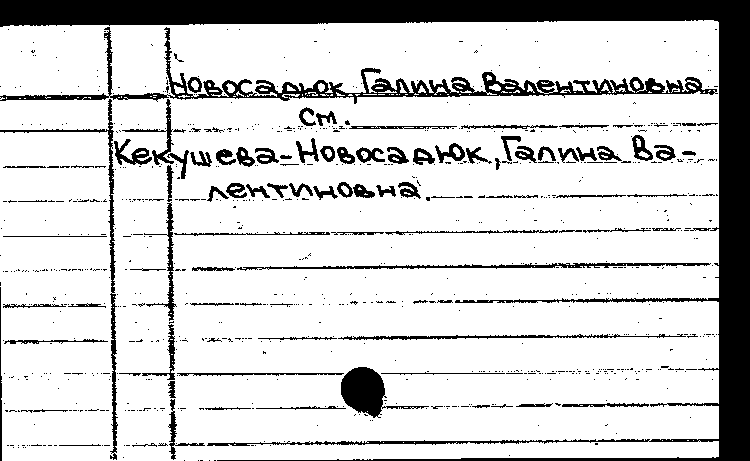 Новосадюк, Галина Валентиновна.
см.
Кекушева-Новосадюк, Галина Ва-
лентиновна.